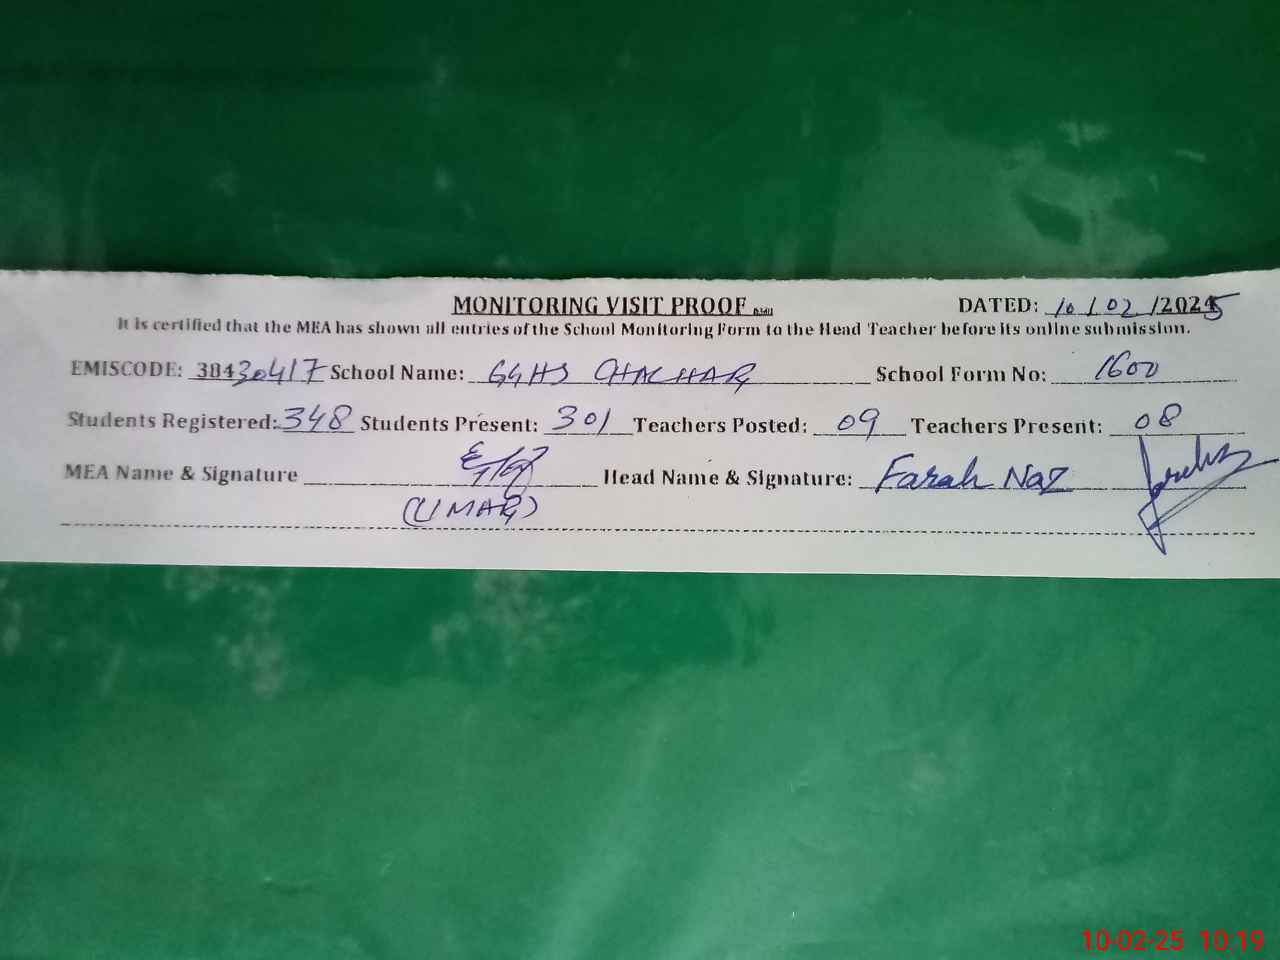 MONITORING VISIT PROOF DATED: 10/02/2025
It is certified that the MEA has shown all entries of the School Monitoring Form to the Head Teacher before its online submission.
EMISCODE: 38430417 School Name: GGHS CHACHAR School Form No: 1600
Students Registered: 348 Students Present: 301 Teachers Posted: 09 Teachers Present: 08
MEA Name & Signature Head Name & Signature: Farah Naz
(UMAR)
10-02-25 10:19